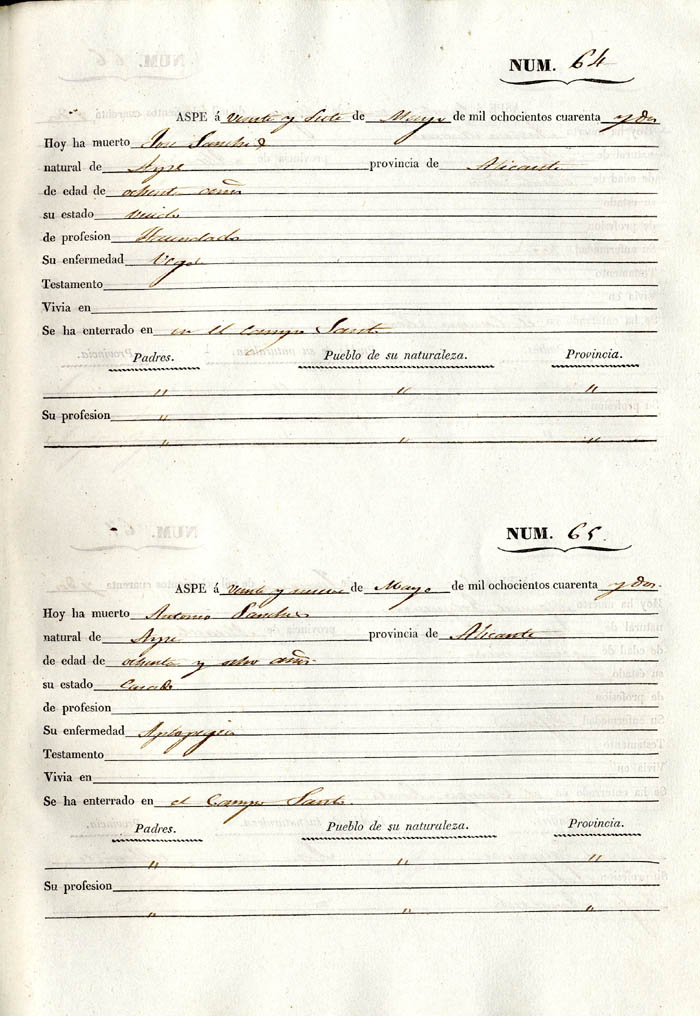 NUM. 64
ASPE á veinte y siete de Mayo de mil ochocientos cuarenta y dos
Hoy ha muerto Jose Sanchez
natural de Aspe provincia de Alicante
de edad de ochenta años
su estado viudo
de profesion Hacendado
Su enfermedad
Testamento
Vivia en
Se ha enterrado en en el Campo Santo
Padres. Pueblo de su naturaleza. Provincia.
" " "
Su profesion "
" " "
NUM. 65.
ASPE á veinte y nueve de Mayo de mil ochocientos cuarenta y dos.
Hoy ha muerto Antonio Sanches
natural de Aspe provincia de Alicante
de edad de ochenta y ocho años.
su estado Casado
de profesion
Su enfermedad Aplopegia
Testamento
Vivia en
Se ha enterrado en el Campo Santo.
Padres. Pueblo de su naturaleza. Provincia.
" " "
Su profesion
" " "